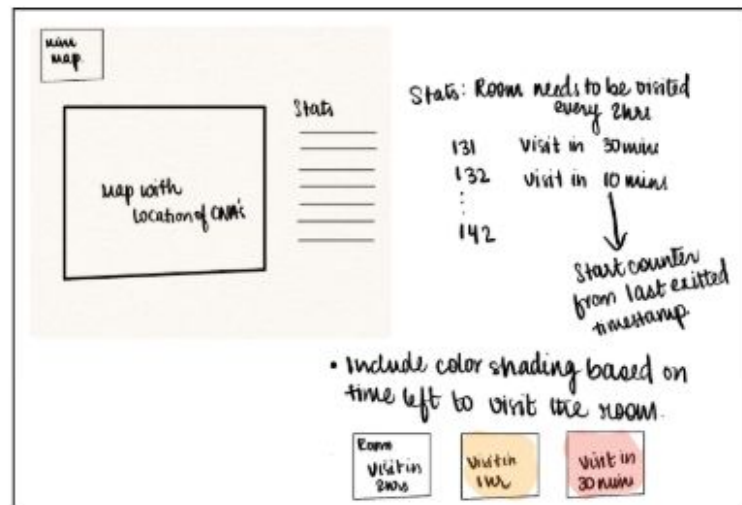 mini
map
Stats
Map with
location of CNA's
Stats: Room needs to be visited
every 2hrs
131 visit in 30 mins
132 visit in 10 mins
⋮
142
Start counter
from last exited
timestamp
• Include color shading based on
time left to visit the room.
Room
Visit in
2hrs
Visit in
1 hr
Visit in
30 mins